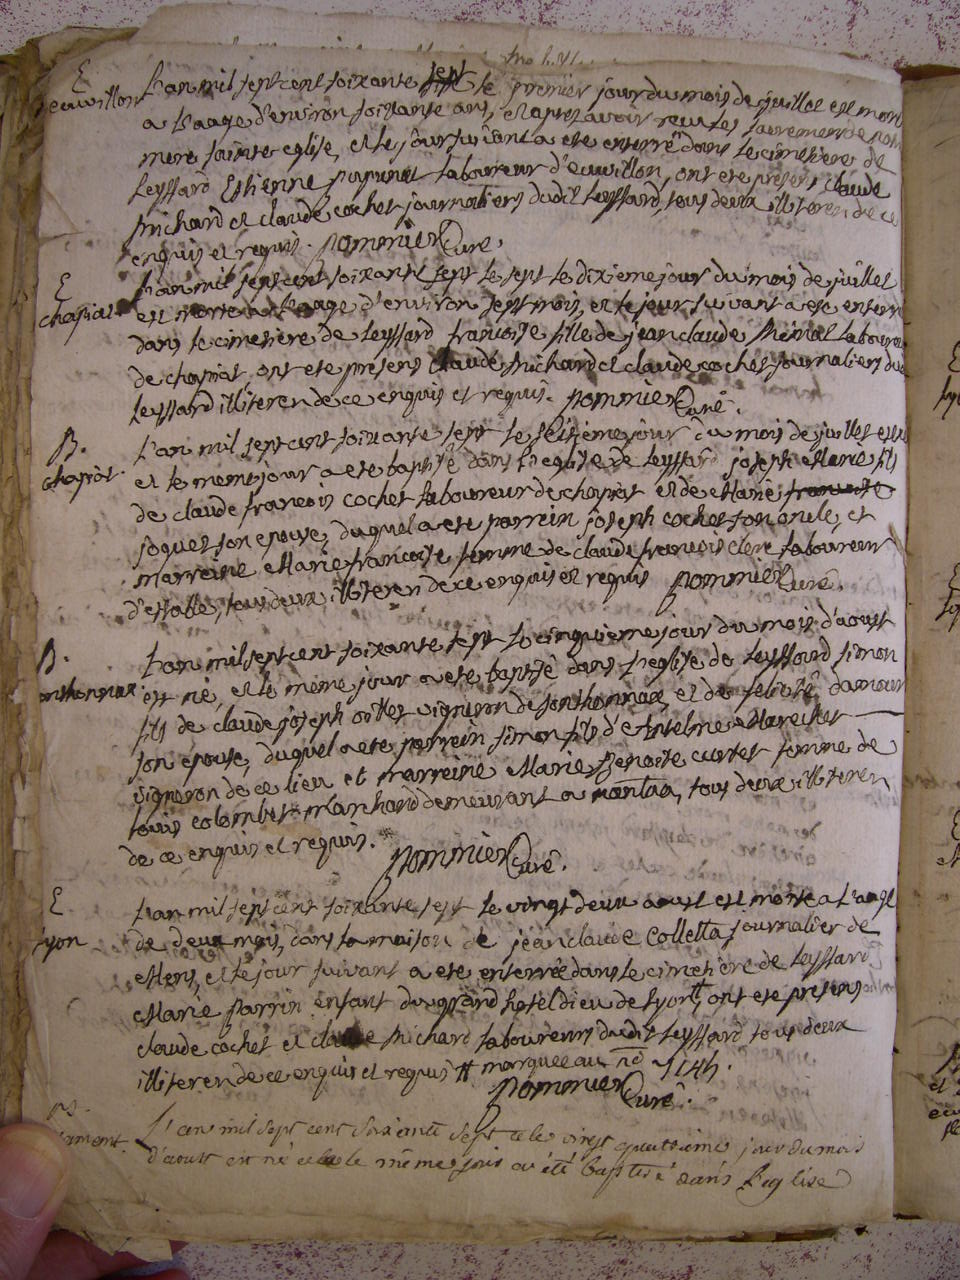 E
L'an mil sept cent soixante sept le premier jour du mois de juillet est mort
a l'aage d'environ soixante ans, et apres avoir reçu les sacremens de
mere sainte eglise, et le jour suivant a ete enterré dans le cimetiere de
Leyssard Estienne pupunat laboureur d'euvillon, ont ete présens Claude
Michard et claude cochet journaliers dudit Leyssard, tous deux illiteres de ce
enquis et requis. pommier Curé.
E
chapiat
L'an mil sept cent soixante sept le sept le dixieme jour du mois de juillet
est morte a l'aage d'environ sept mois, et le jour suivant a ete enterré
dans le cimetiere de Leyssard francoise fille de jean claude
de chapiat, ont ete présens Claude Michard et claude cochet journaliers du
Leyssard illiteres de ce enquis et requis. pommier Curé.
B.
chapiat
L'an mil sept cent soixante sept le seizieme jour du mois de juillet est né
et le meme jour a ete baptisé dans l'eglise de Leyssard joseph Marie fils
de claude francois cochet laboureur de chapiat et de Marie francoise
joquet son epouse, duquel a ete parrein joseph cochet son oncle, et
marreine Marie francoise femme de claude francois clerc laboureur
d'estable, tous deux illiteres de ce enquis et requis pommier Curé.
B.
onthonnax
L'an mil sept cent soixante sept le cinquieme jour du mois d'aoust
est né, et le même jour a ete baptisé dans l'eglise de Leyssard simon
fils de claude joseph vigneron de sonthonnax, et de felicité damour
son épouse, duquel a ete parrein simon fils d'Antelme Marechet
vigneron de ce lieu et marreine Marie Benoite curtet femme de
louis colombet Marchand demeurant a, tous deux illiteres
de ce enquis et requis.
pommier Curé.
E
Lyon
L'an mil sept cent soixante sept le vingt deux aoust est morte a l'aage
de deux mois, dans la maison de jean claude Colletta journalier de
Mens, et le jour suivant a ete enterrée dans le cimetiere de Leyssard
Marie parrin enfant du grand hotel dieu de Lyon #, ont ete présens
claude cochet et claude Michard laboureurs dudit Leyssard tous deux
illiteres de ce enquis et requis # marquee au nd
pommier Curé.
B.
L'an mil sept cent soixante sept et le vingt quatrieme jour du mois
d'aoust est né et le même jour a été baptisé dans l'eglise